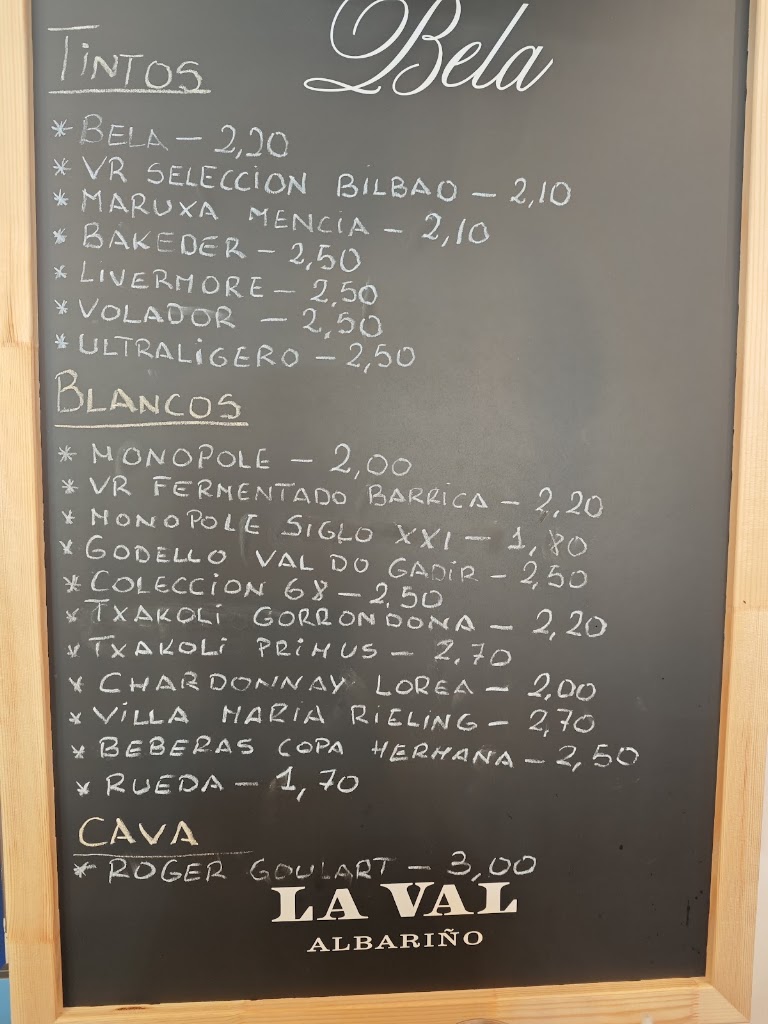 Bela
TINTOS
* BELA – 2,20
* VR SELECCION BILBAO – 2,10
* MARUXA MENCIA – 2,10
* BAKEDER – 2,50
* LIVERMORE – 2,50
* VOLADOR – 2,50
* ULTRALIGERO – 2,50
BLANCOS
* MONOPOLE – 2,00
* VR FERMENTADO BARRICA – 2,20
* MONOPOLE SIGLO XXI – 1,80
* GODELLO VAL DO GADIR – 2,50
* COLECCION 68 – 2,50
* TXAKOLI GORRONDONA – 2,20
* TXAKOLI PRIMUS – 2,70
* CHARDONNAY LOREA – 2,00
* VILLA MARIA RIELING – 2,70
* BEBERAS COPA HERMANA – 2,50
* RUEDA – 1,70
CAVA
* ROGER GOULART – 3,00
LA VAL
ALBARIÑO